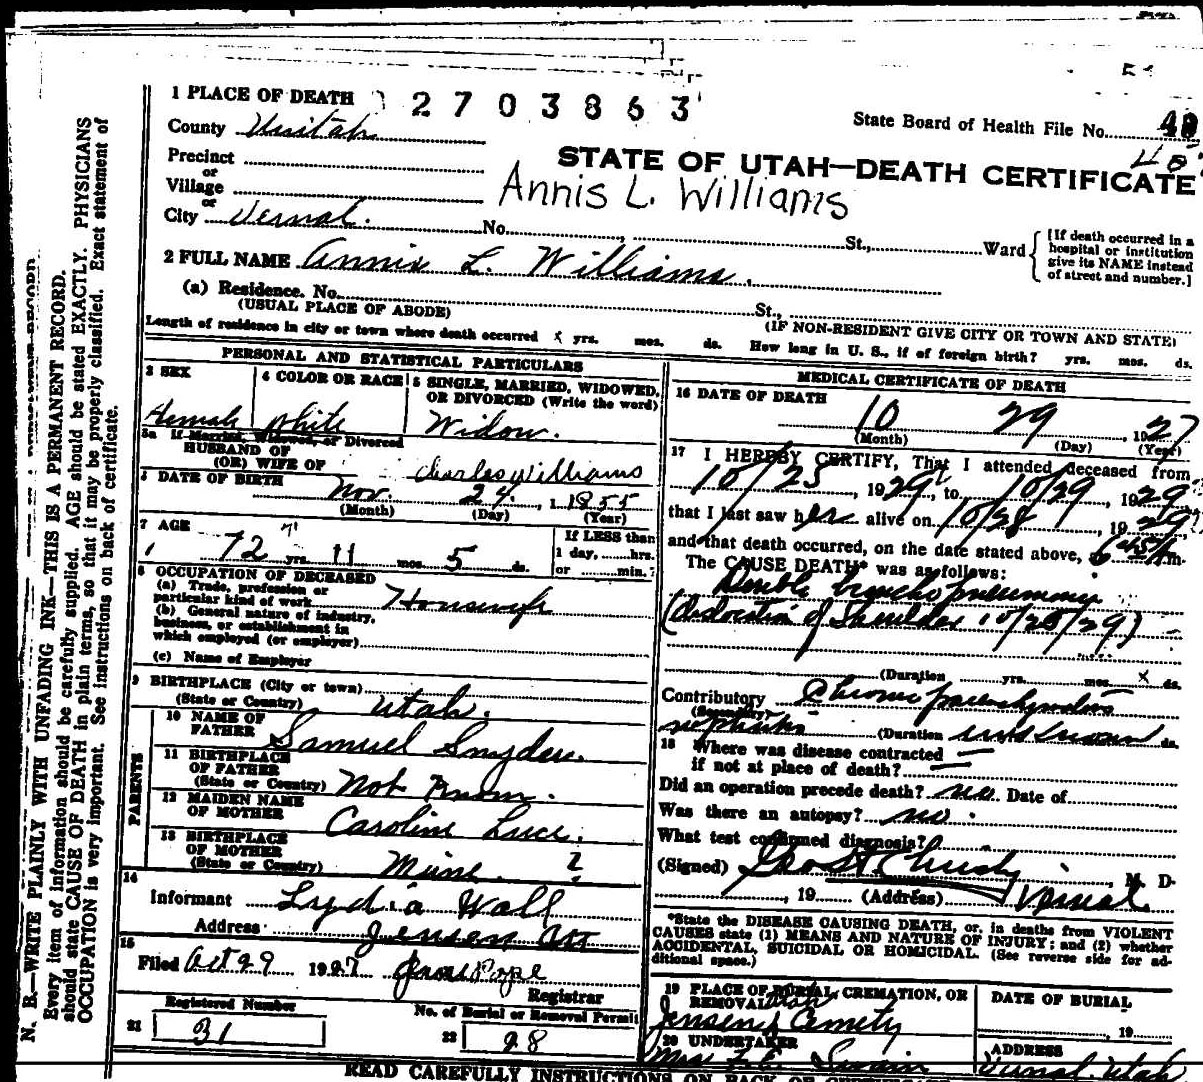 1 PLACE OF DEATH 2703863
State Board of Health File No.
County Uintah
STATE OF UTAH—DEATH CERTIFICATE
Precinct
or
Village
or
Annis L. Williams
City Vernal. No. St., Ward
[If death occurred in a
hospital or institution
give its NAME instead
of street and number.]
2 FULL NAME Annis L. Williams.
(a) Residence. No. St.,
(USUAL PLACE OF ABODE)
(IF NON-RESIDENT GIVE CITY OR TOWN AND STATE)
Length of residence in city or town where death occurred yrs. mos. ds. How long in U. S., if of foreign birth? yrs. mos. ds.
PERSONAL AND STATISTICAL PARTICULARS
3 SEX
Female
4 COLOR OR RACE
White
5 SINGLE, MARRIED, WIDOWED,
OR DIVORCED (Write the word)
Widow.
5a If Married, Widowed, or Divorced
HUSBAND OF
(OR) WIFE OF Charles Williams
DATE OF BIRTH Nov. 24, 1855
(Month) (Day) (Year)
7 AGE
72 yrs. 11 mos. 5 ds.
If LESS than
1 day, hrs.
or min.
8 OCCUPATION OF DECEASED
(a) Trade, profession or
particular kind of work Housewife
(b) General nature of industry,
business, or establishment in
which employed (or employer)
(c) Name of Employer
9 BIRTHPLACE (City or town)
(State or Country) Utah.
PARENTS
10 NAME OF
FATHER Samuel Snyder.
11 BIRTHPLACE
OF FATHER
(State or Country) Not Known.
12 MAIDEN NAME
OF MOTHER Caroline Luce.
13 BIRTHPLACE
OF MOTHER
(State or Country) Maine. ?
14
Informant Lydia Wall
Address Jensen Ut
15
Filed Oct 29 1927 Pope
Registrar
Registered Number
21 31
No. of Burial or Removal Permit
22 28
MEDICAL CERTIFICATE OF DEATH
16 DATE OF DEATH
10 29, 1927
(Month) (Day) (Year)
17 I HEREBY CERTIFY, That I attended deceased from
10/25, 1929, to 10/29, 1929
that I last saw her alive on 10/28, 1929
and that death occurred, on the date stated above, m.
The CAUSE DEATH* was as follows:
Double broncho pneumony
(dislocation of Shoulder 10/25/29)
(Duration yrs. mos. ds.
Contributory Chronic parenchymatous
(Secondary)
nephritis (Duration unknown ds.
18 Where was disease contracted
if not at place of death?
Did an operation precede death? no Date of
Was there an autopsy? no.
What test confirmed diagnosis?
(Signed) Geo. H. Christy, M D.
, 19 (Address) Vernal.
*State the DISEASE CAUSING DEATH, or, in deaths from VIOLENT
CAUSES state (1) MEANS AND NATURE OF INJURY; and (2) whether
ACCIDENTAL, SUICIDAL OR HOMICIDAL. (See reverse side for ad-
ditional space.)
19 PLACE OF BURIAL, CREMATION, OR
REMOVAL Utah
Jensen Cemetry
DATE OF BURIAL
, 19
20 UNDERTAKER
Mrs. F. E. Swain
ADDRESS
Vernal, Utah
READ CAREFULLY INSTRUCTIONS ON BACK OF CERTIFICATE
N. B.—WRITE PLAINLY WITH UNFADING INK—THIS IS A PERMANENT RECORD.
Every item of information should be carefully supplied. AGE should be stated EXACTLY. PHYSICIANS
should state CAUSE OF DEATH in plain terms, so that it may be properly classified. Exact statement of
OCCUPATION is very important. See instructions on back of certificate.